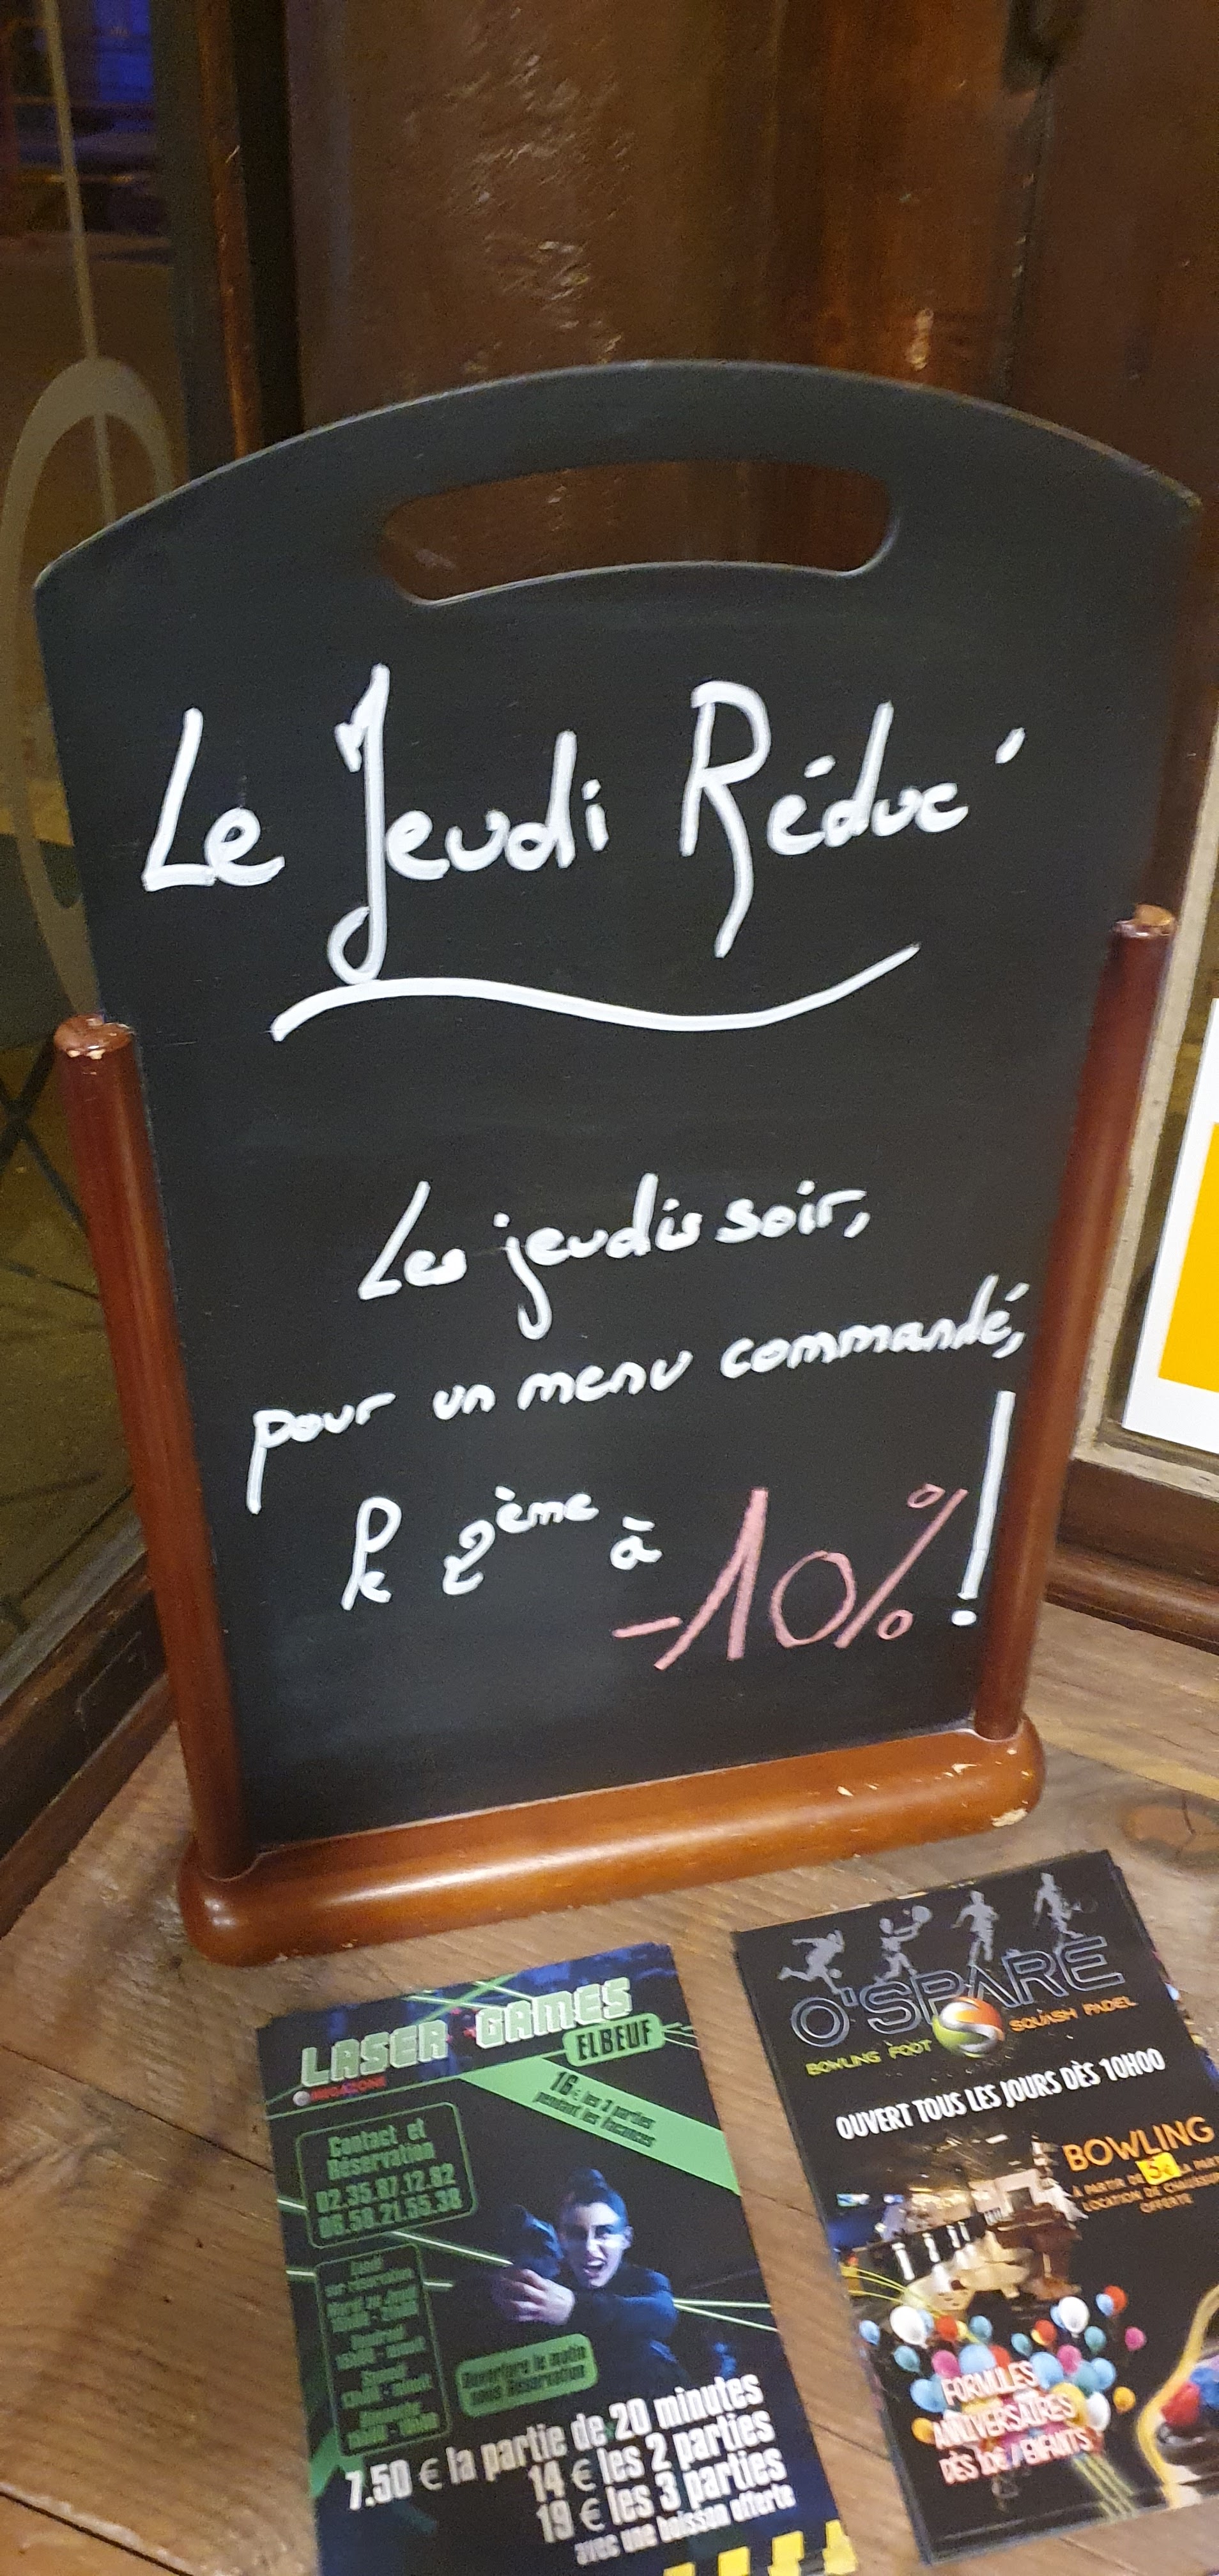 Le Jeudi Réduc'
Les jeudis soir,
pour un menu commandé,
le 2ème à
-10% !
LASER GAMES
ELBEUF
MEGAZONE
16€ les 3 parties
pendant les vacances
Contact et
Réservation
02.35.87.12.92
06.58.21.55.38
Ouverture le matin
sous Réservation
7.50 € la partie de 20 minutes
14 € les 2 parties
19 € les 3 parties
avec une boisson offerte
O'SPARE
BOWLING FOOT SQUASH PADEL
OUVERT TOUS LES JOURS DÈS 10H00
BOWLING
À PARTIR DE 5€ LA PART
LOCATION DE CHAUSSUR
OFFERTE
FORMULES
ANNIVERSAIRES
DÈS 10€ / ENFANTS